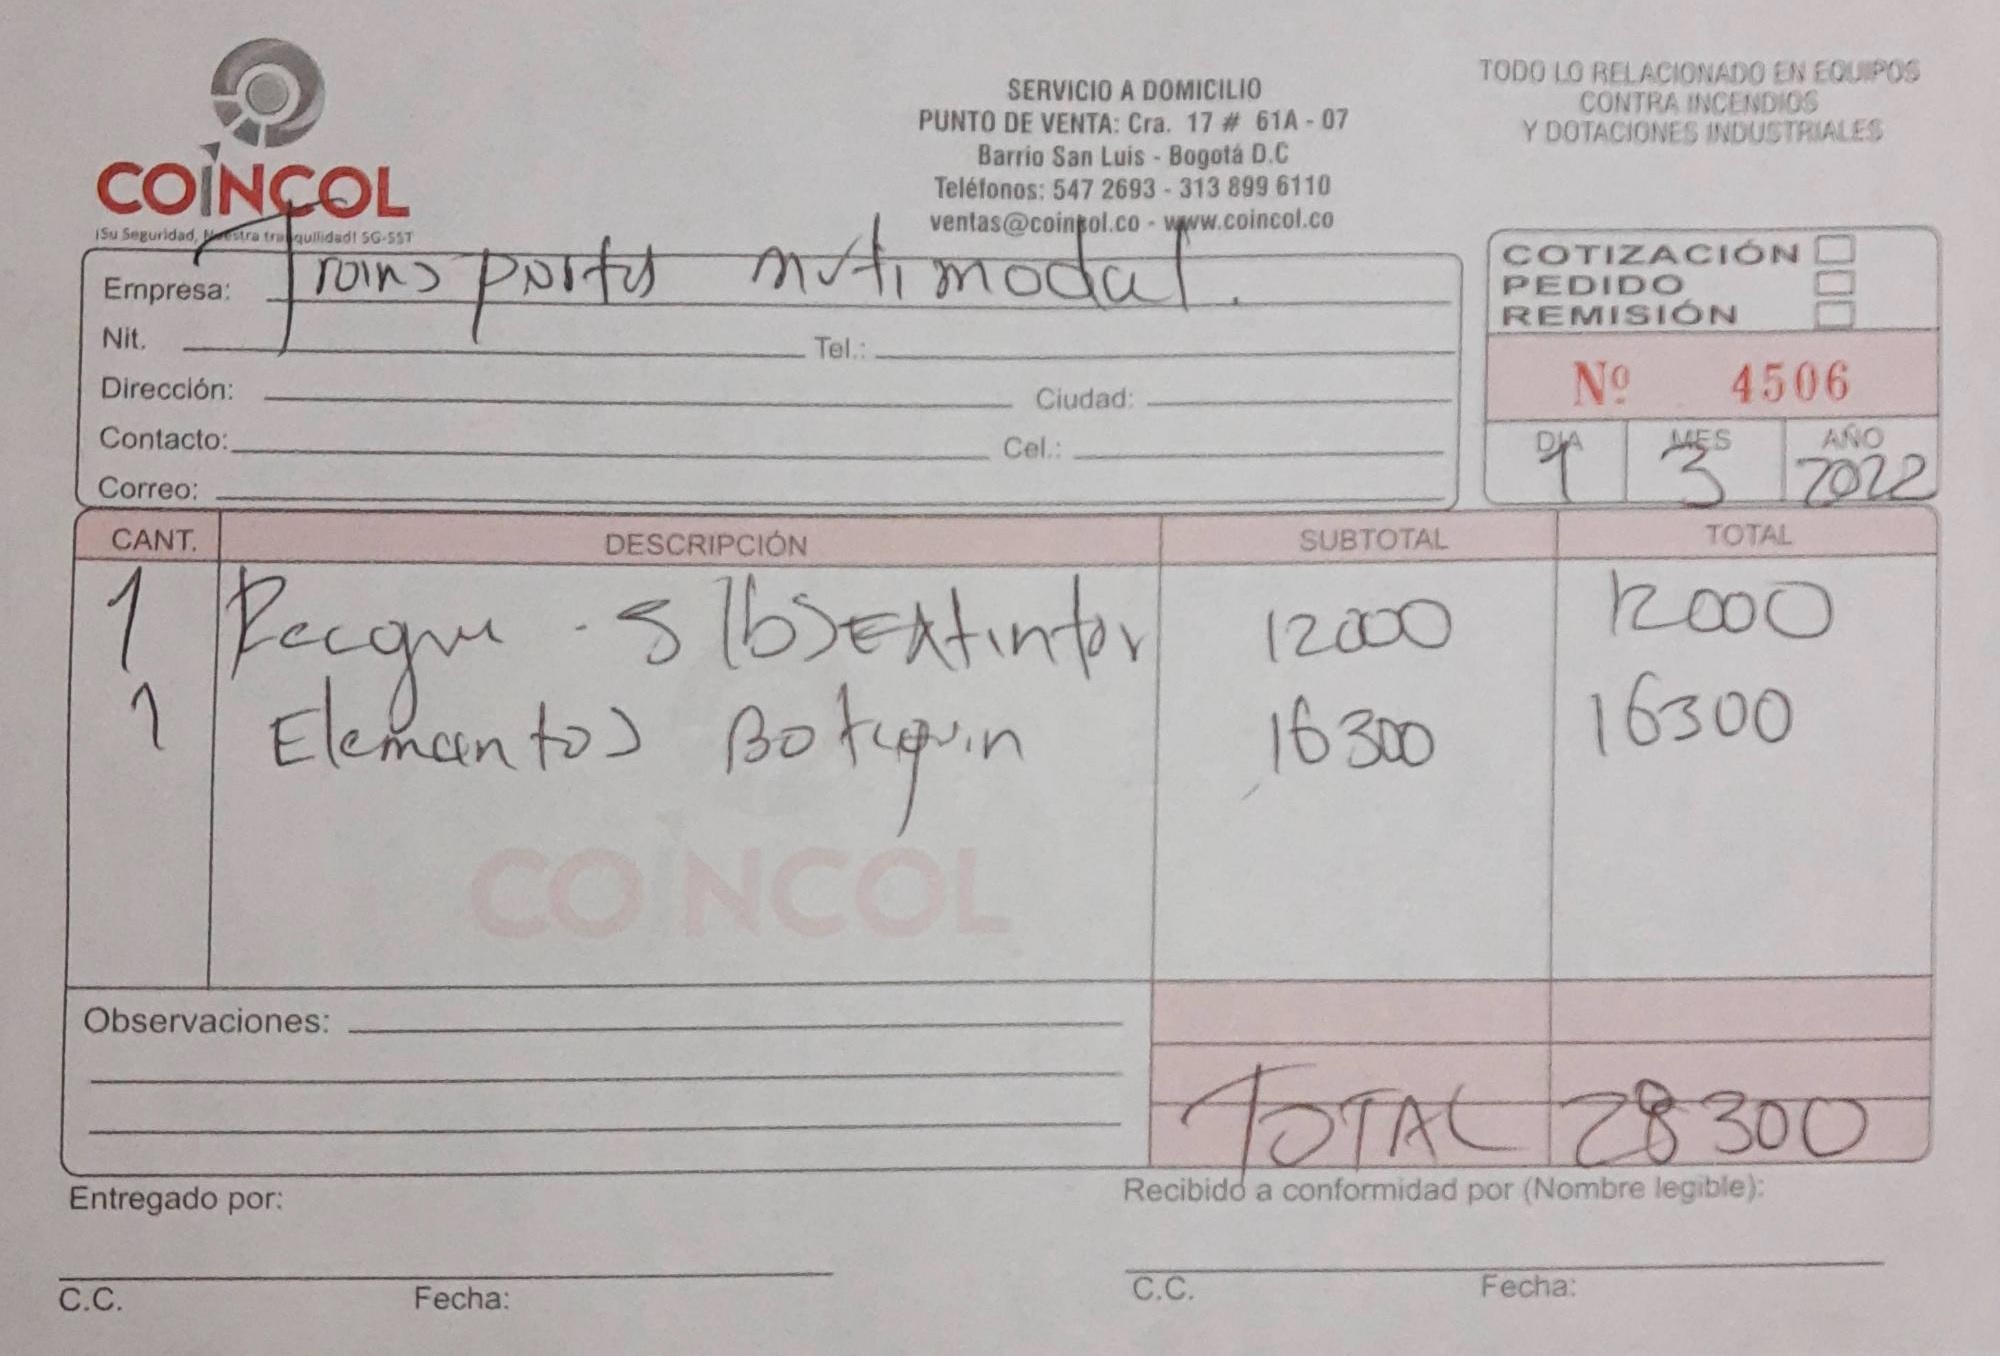 COINCOL
¡Su Seguridad, Nuestra tranquilidad! SG-SST
SERVICIO A DOMICILIO
PUNTO DE VENTA: Cra. 17 # 61A - 07
Barrio San Luis - Bogotá D.C
Teléfonos: 547 2693 - 313 899 6110
ventas@coincol.co - www.coincol.co
TODO LO RELACIONADO EN EQUIPOS
CONTRA INCENDIOS
Y DOTACIONES INDUSTRIALES
Empresa: Transportes mutimodal.
Nit. Tel.:
Dirección: Ciudad:
Contacto: Cel.:
Correo:
COTIZACIÓN
PEDIDO
REMISIÓN
Nº 4506
DIA MES AÑO
1 3 2022
CANT. DESCRIPCIÓN SUBTOTAL TOTAL
1 Recgue - 5 lbs Extintor 12000 12000
1 Elementos Botequin 16300 16300
COINCOL
Observaciones:
TOTAL 28300
Entregado por:
Recibido a conformidad por (Nombre legible):
C.C. Fecha:
C.C. Fecha: